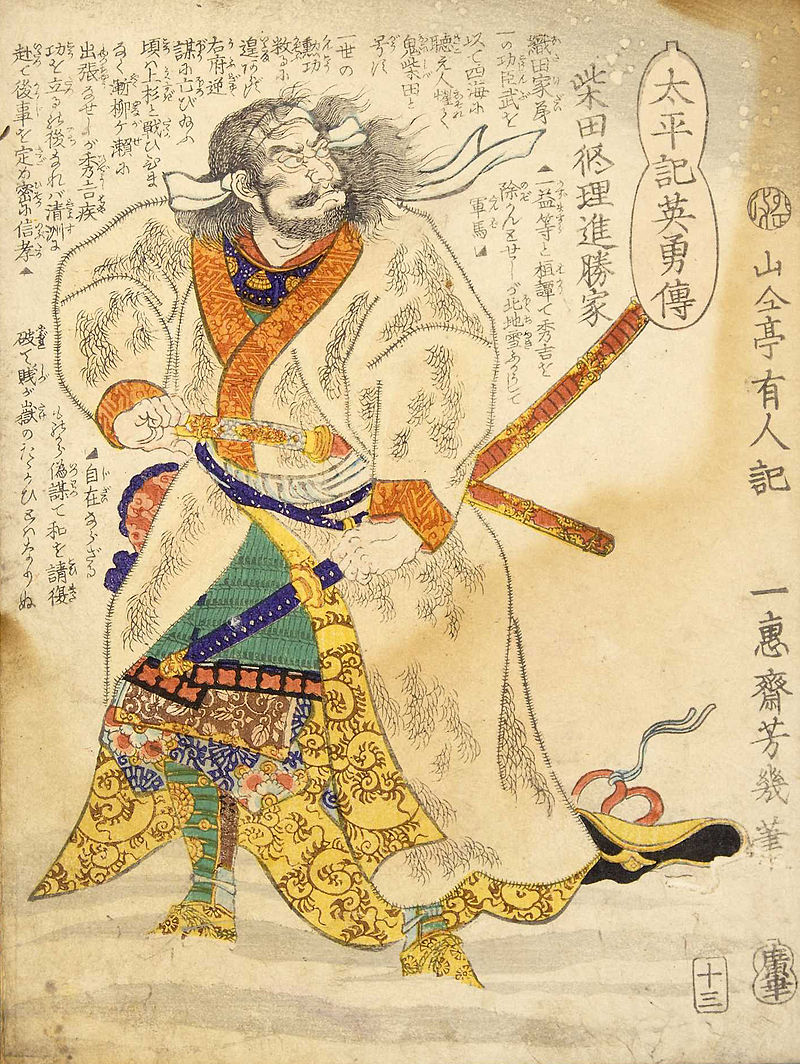 太平記英勇傳
柴田修理進勝家
織田家第
一の功臣武を
以て四海に
聴え人懼て
鬼柴田と
号す
一世の
勲功
数るに
遑あらず
右府逆
謀に亡びあふ
頃ハ上杉と戦ひひま
なく漸柳ヶ瀬に
出張なせしが秀吉疾
功を立るの後なれバ清洲に
赴て後事を定め密に信孝▲
▲一益等と相譚て秀吉を
除んとせしが北地雪ふかうして
軍馬▲
▲自在ならざる
から偽謀て和を請復
破て賤が嶽のたゝかひとハなりぬ
山々亭有人記
一惠齋芳幾筆
十三
廣